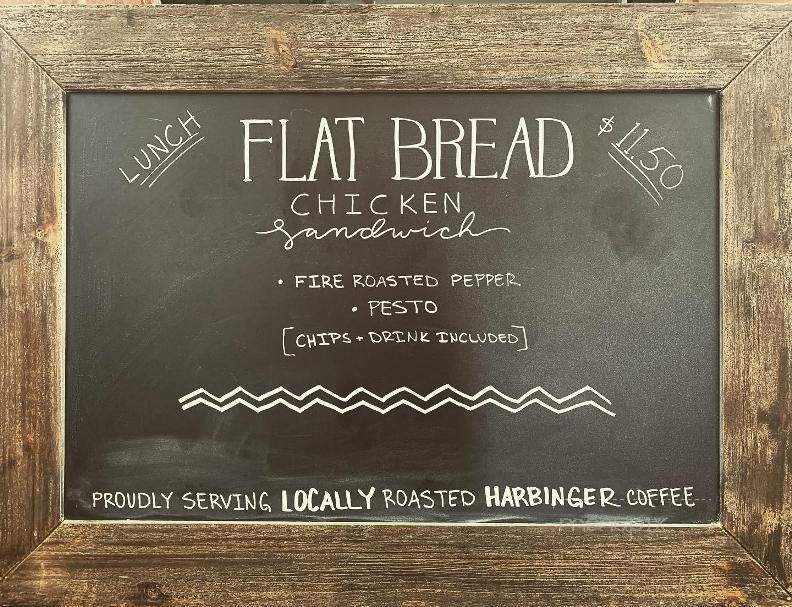 LUNCH
FLAT BREAD
$11.50
CHICKEN
sandwich
• FIRE ROASTED PEPPER
• PESTO
[CHIPS + DRINK INCLUDED]
PROUDLY SERVING LOCALLY ROASTED HARBINGER COFFEE